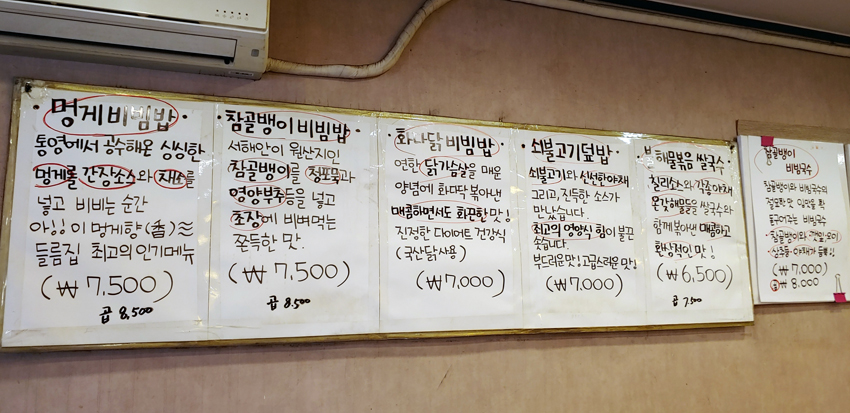 멍게비빔밥
통영에서 공수해온 싱싱한
멍게를 간장소스와 채소를
넣고 비비는 순간
아!! 이 멍게향(香)
들름집 최고의 인기메뉴
(₩ 7,500)
곱 8,500
참골뱅이비빔밥
서해안이 원산지인
참골뱅이를 청포묵과
영양부추등을 넣고
초장에 비벼먹는
쫀득한 맛.
(₩ 7,500)
곱 8.500
화나닭비빔밥
연한 닭가슴살을 매운
양념에 화다닥 볶아낸
매콤하면서도 화끈한 맛!
진정한 다이어트 건강식
(국산닭사용)
(₩ 7,000)
쇠불고기덮밥
쇠불고기와 신선한야채
그리고, 진득한 소스가
만났습니다.
최고의 영양식 힘이 불끈
솟습니다.
부드러운맛! 고급스러운 맛!
(₩ 7,000)
해물볶음 쌀국수
칠리소스와 각종야채
온갖해물들을 쌀국수와
함께볶아낸 매콤하고
환상적인 맛!
(₩ 6,500)
곱 7.500
참골뱅이
비빔국수
참골뱅이와 비빔국수의
입맛을 확
돋구어주는 비빔국수
(₩ 7,000)
₩ 8.000